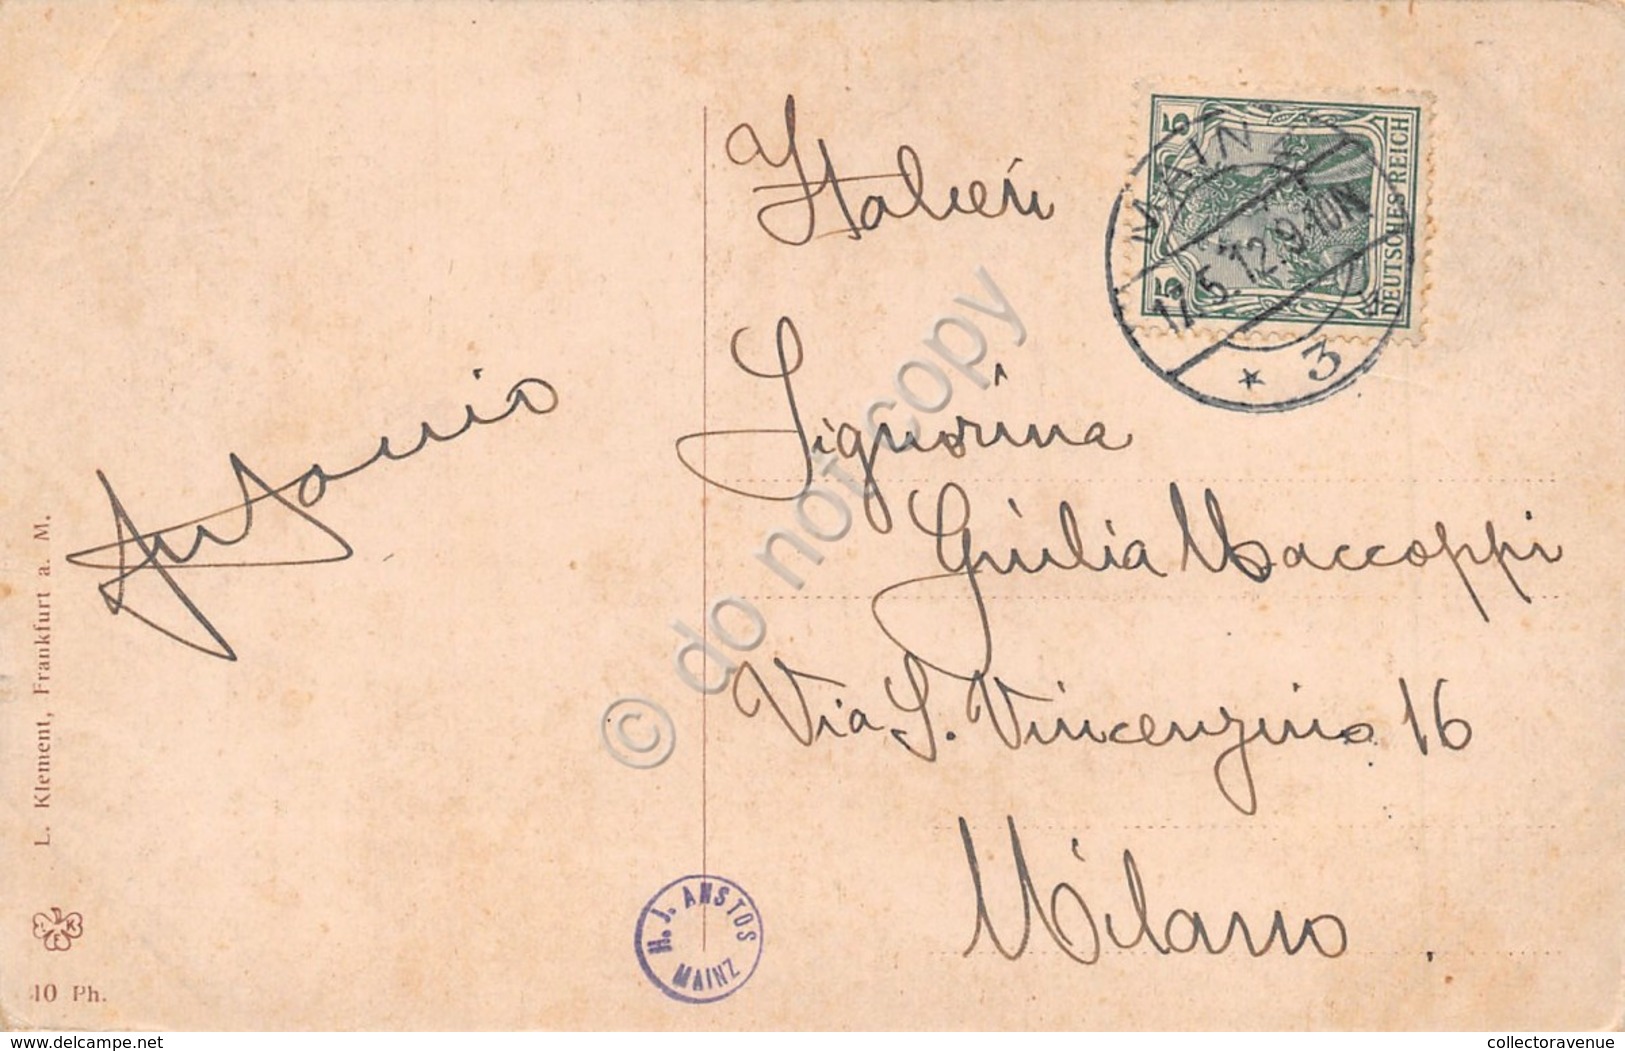 Italien
5
5
DEUTSCHES REICH
MAINZ
17.5.12.9-10N
* 3
Signorina
Giulia Maccoppi
Via S. Vincenzino 16
Milano
Antonio
L. Klement, Frankfurt a. M.
40 Ph.
H. J. ANSTOS
MAINZ
© do not copy
www.delcampe.net
collectoravenue